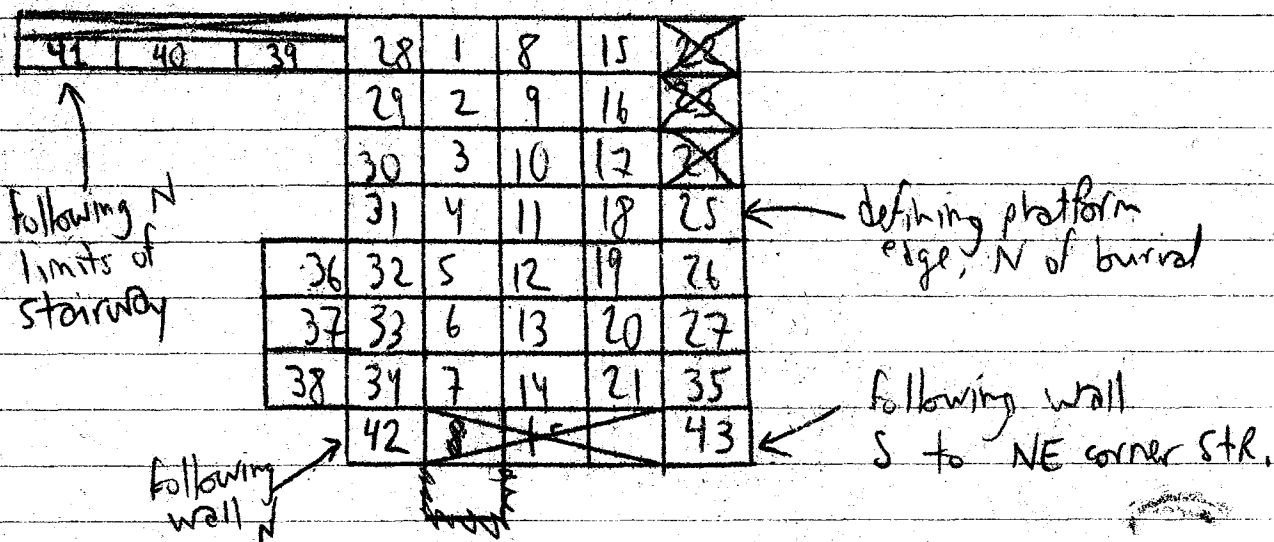 41 40 39 28 1 8 15 22
29 2 9 16 23
30 3 10 17 24
31 4 11 18 25
36 32 5 12 19 26
37 33 6 13 20 27
38 34 7 14 21 35
42 43
following N
limits of
stairway
defining platform
edge, N of burial
following wall
S to NE corner STR.
following
wall N